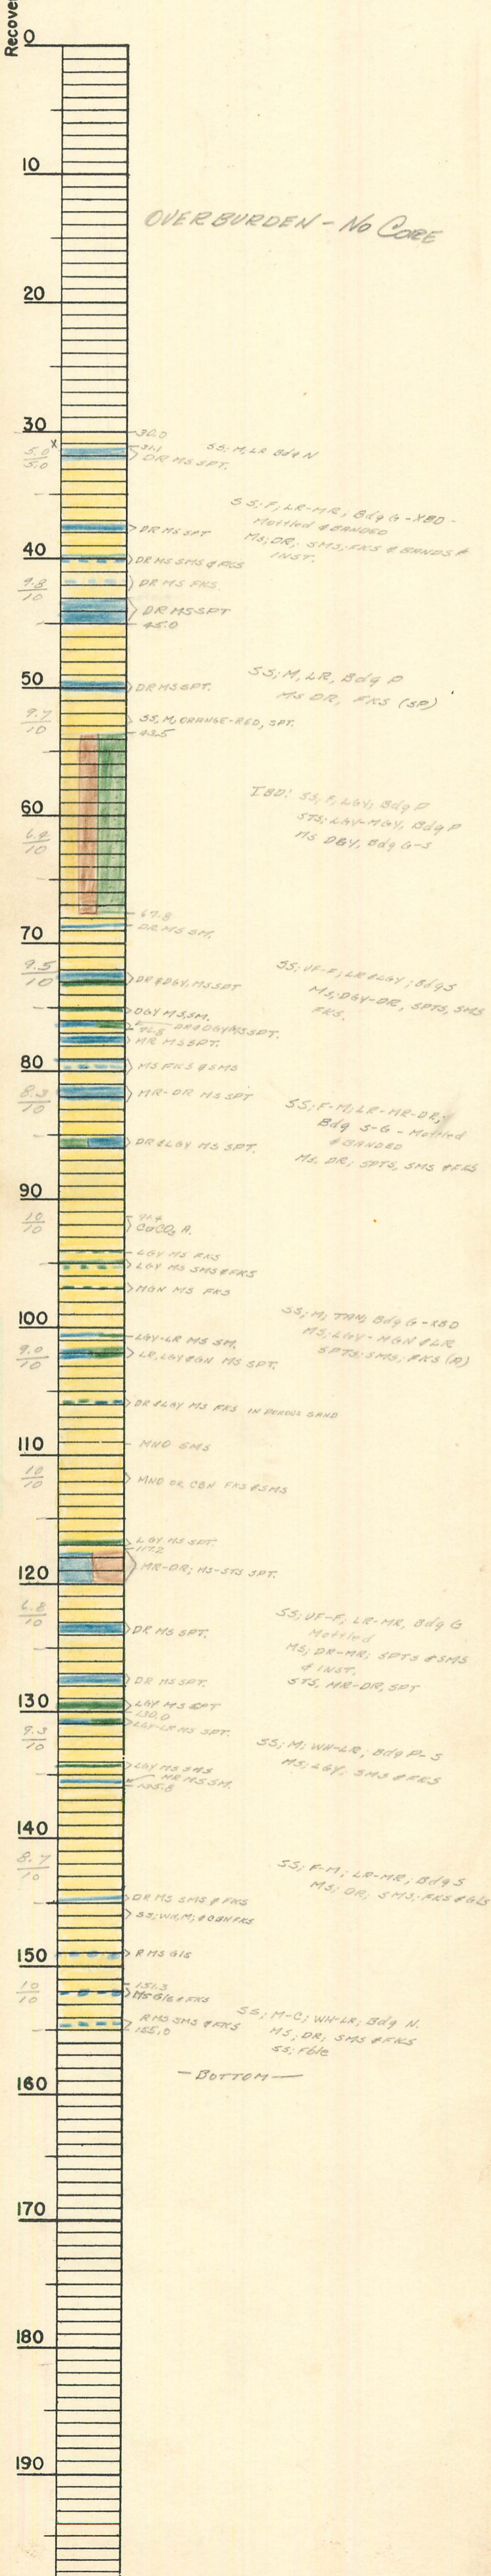 Recover
0
10
OVERBURDEN - NO CORE
20
30
30.0
5.0
5.0
X
31.1
SS; M, LR Bdg N
DR MS SPT.
SS; F, LR-MR, Bdg G - XBD -
Mottled & BANDED
MS; DR, SMS; FKS & BANDS &
INST.
DR MS SPT
40
DR MS SMS & FKS
9.8
10
DR MS FKS
DR MS SPT
45.0
SS; M, LR, Bdg P
MS DR, FKS (SP)
50
DR MS SPT.
9.7
10
SS, M, ORANGE-RED, SPT.
43.5
60
IBD: SS, F, LGY, Bdg P
STS; LGY-MGY, Bdg P
MS DGY, Bdg G-S
6.9
10
67.8
DR MS SM.
70
9.5
10
SS; VF-F, LR & LGY; Bdg S
MS; DGY-DR, SPTS, SMS
FKS.
DR & DGY, MS SPT
DGY MS, SM.
DR & DGY MS SPT.
MR MS SPT.
80
MS FKS & SMS
8.3
10
MR-DR MS SPT
SS; F-M; LR-MR-DR;
Bdg S-G - Mottled
& BANDED
MS. DR; SPTS, SMS & FKS
DR & LGY MS SPT.
90
10
10
91.4
CaCO3 A.
LGY MS FKS
LGY MS SMS & FKS
MGN MS FKS
SS; M; TAN; Bdg G - XBD
MS; LGY - MGN & LR
SPTS; SMS; FKS (A)
100
LGY-LR MS SM.
9.0
10
LR, LGY & GN MS SPT.
DR & LGY MS FKS IN POROUS SAND
MNO SMS
110
10
10
MNO OR CBN FKS & SMS
LGY MS SPT.
117.2
MR-DR; MS-STS SPT.
120
6.8
10
SS; VF-F, LR-MR, Bdg G
Mottled
MS; DR-MR; SPTS & SMS
& INST.
STS, MR-DR, SPT
DR MS SPT.
DR MS SPT.
LGY MS SPT
130
130.0
LGY-LR MS SPT.
9.3
10
SS; M; WH-LR; Bdg P-S
MS; LGY, SMS & FKS
LGY MS SMS
MR MS SM.
135.8
140
8.7
10
SS; F-M; LR-MR; Bdg S
MS; DR; SMS; FKS & GLS
DR MS SMS & FKS
SS; WH, M; & CBN FKS
150
R MS GLS
10
10
151.3
MS GLS & FKS
SS; M-C; WH-LR; Bdg N.
MS; DR; SMS & FKS
SS; Fble
R MS SMS & FKS
155.0
- BOTTOM -
160
170
180
190